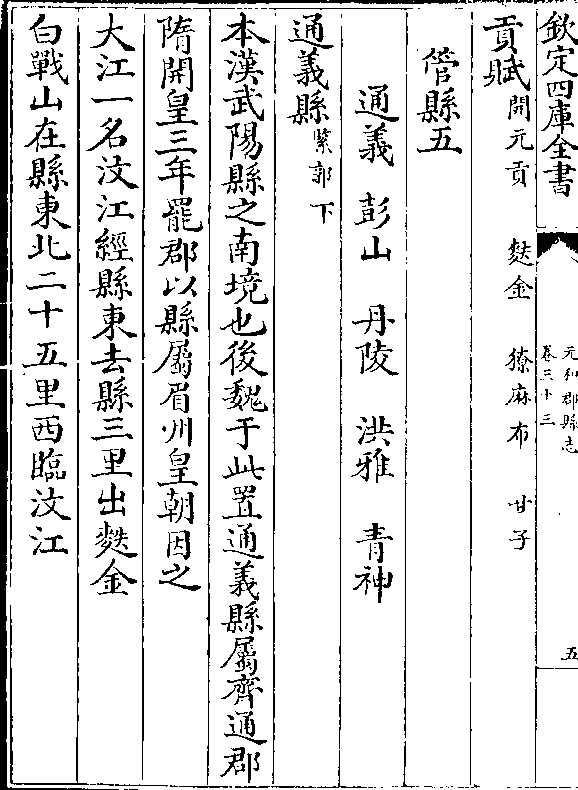 欽定四庫全書
元和郡縣志
卷三十三
五
貢賦開元貢 麩金 獠麻布 甘子
管縣五
通義 彭山 丹陵 洪雅 青神
通義縣緊郭下
本漢武陽縣之南境也後魏于此置通義縣屬齊通郡
隋開皇三年罷郡以縣屬眉州皇朝因之
大江一名汶江經縣東去縣三里出麩金
白戰山在縣東北二十五里西臨汶江